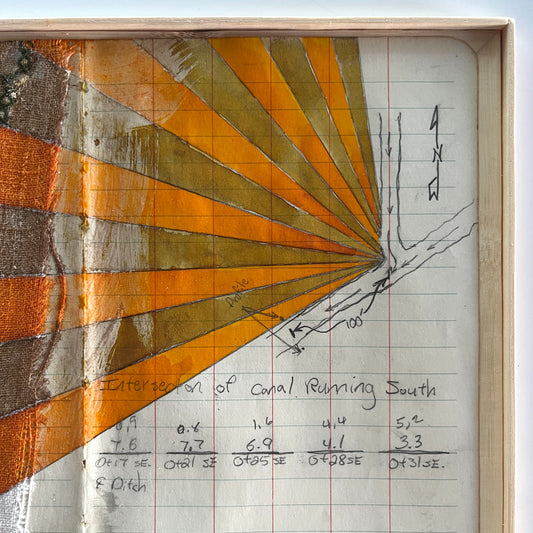 N
100'
Intersecton of Canal Running South
0.9 0.8 1.6 4.4 5.2
7.8 7.7 6.9 4.1 3.3
0+17 SE. 0+21 SE 0+25 SE 0+28 SE 0+31 SE.
& Ditch